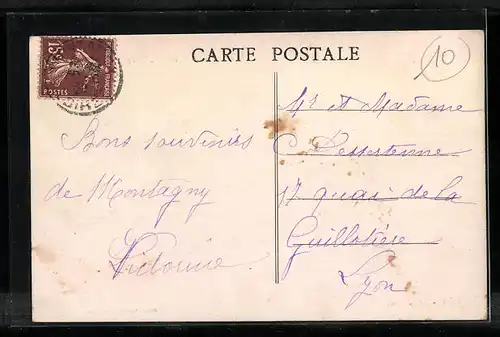 CARTE POSTALE
10
15c
RÉPUBLIQUE FRANÇAISE
POSTES
Bons souvenirs
de Montagny
Mr et Madame
17 quai de la
Guillotière
Lyon